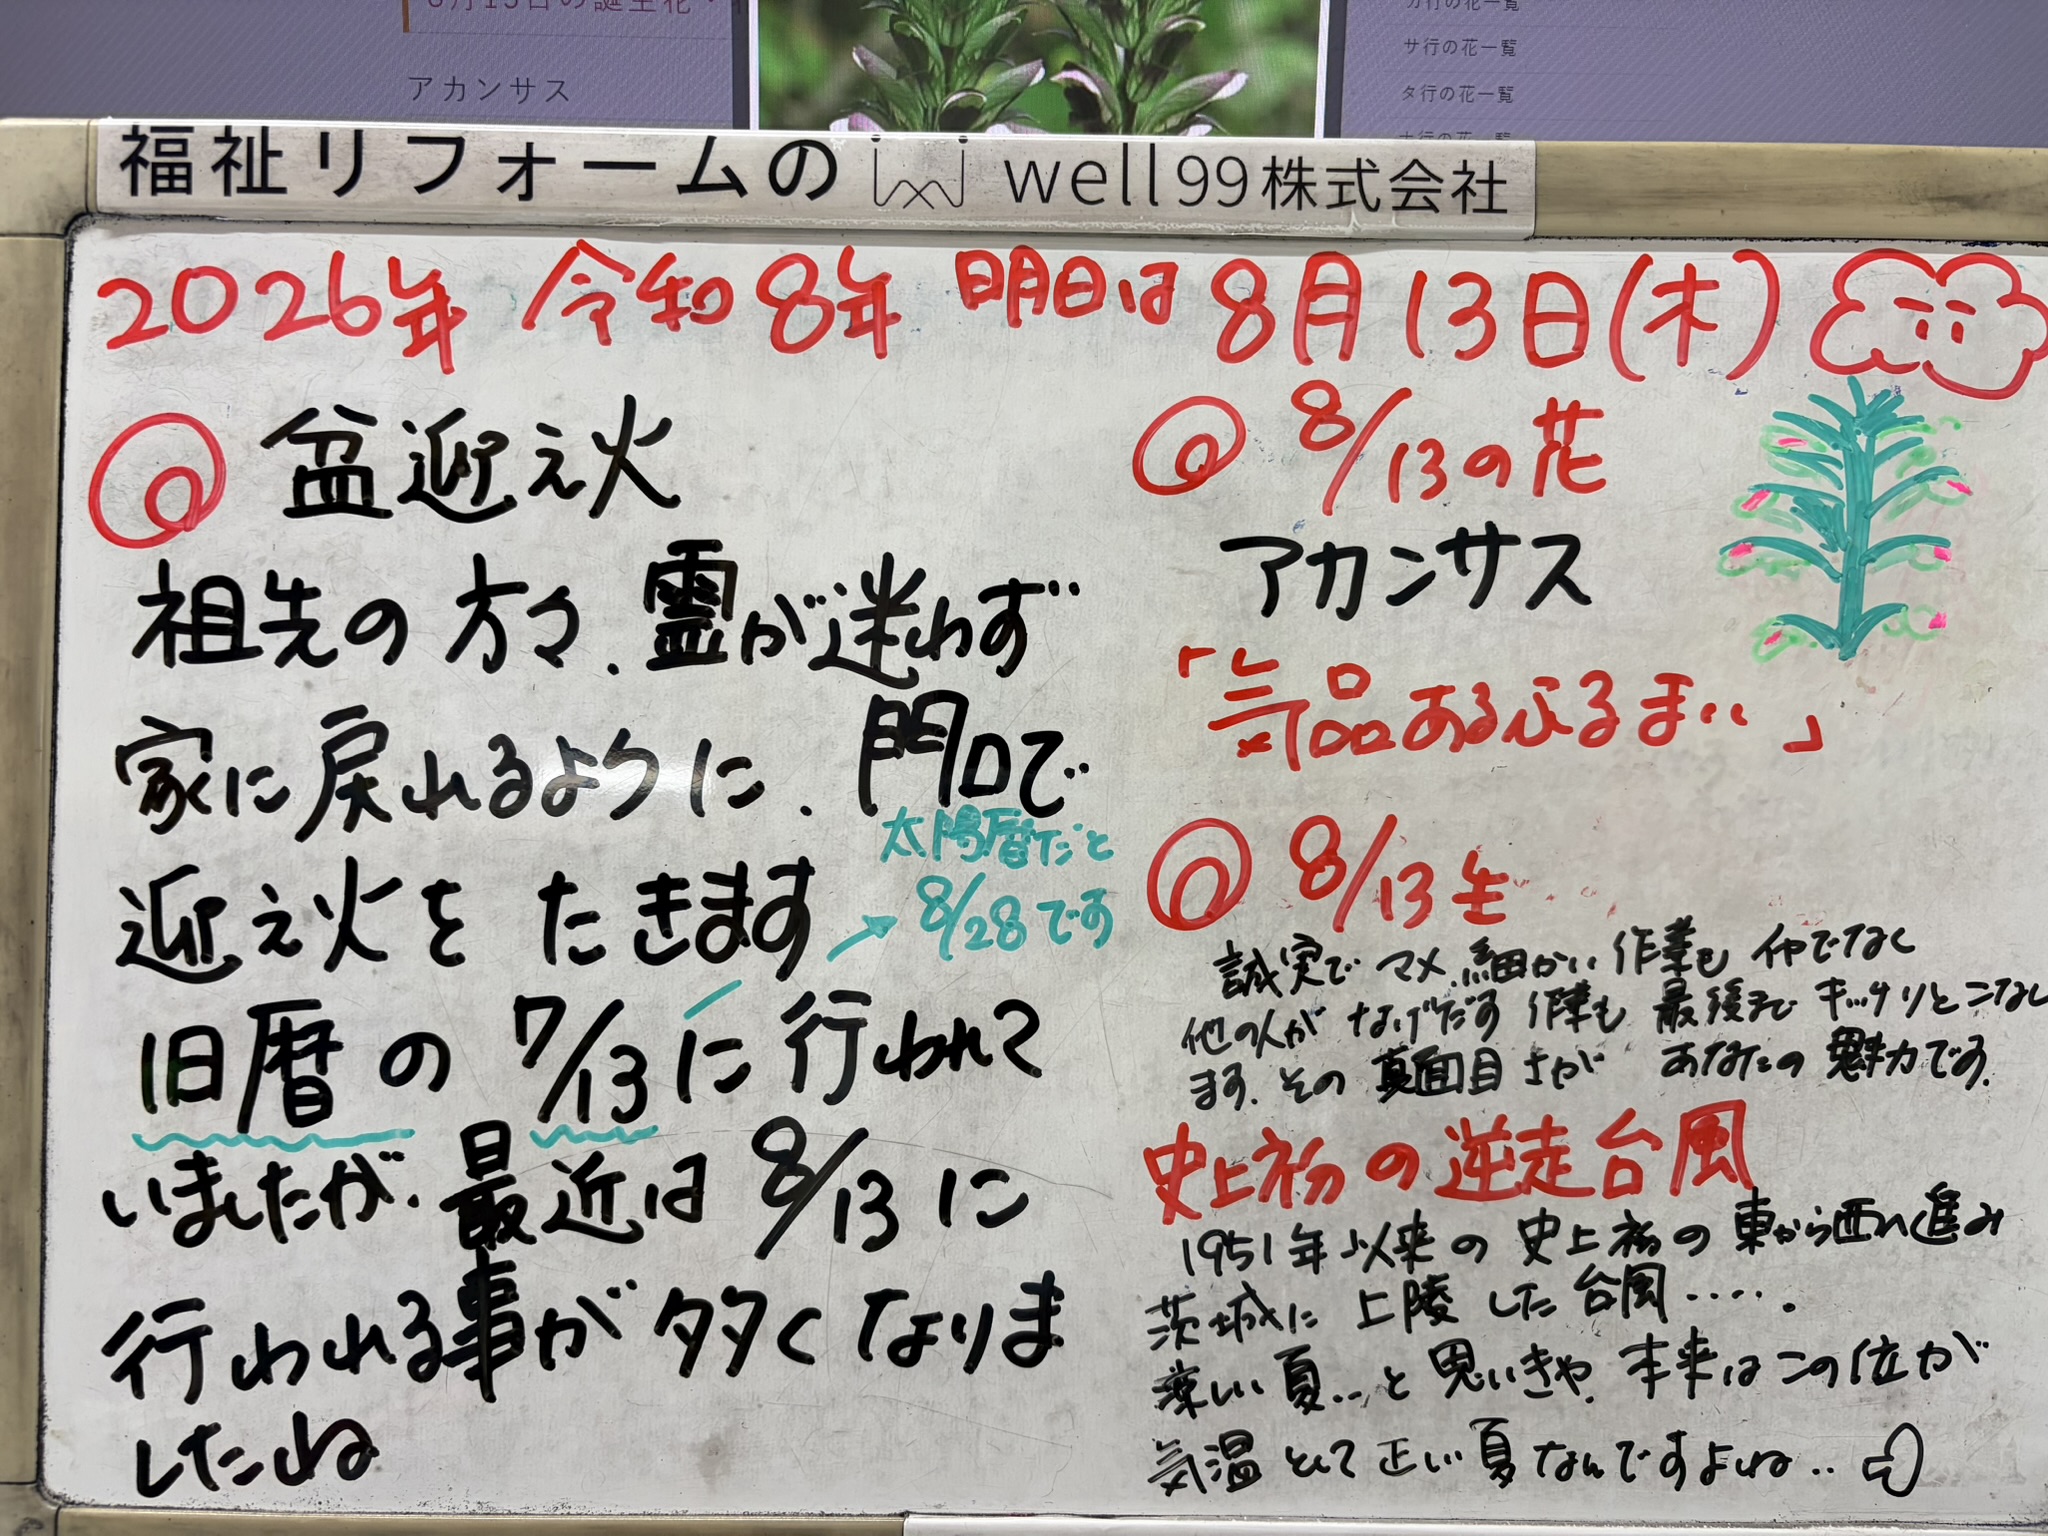 8月13日の誕生花・
アカンサス
カ行の花一覧
サ行の花一覧
タ行の花一覧
ナ行の花一覧
福祉リフォームの well99株式会社
2026年 令和8年 明日は 8月13日(木)
盆迎え火
祖先の方々、霊が迷わず
家に戻れるように、門口で
迎え火を たきます
太陽暦だと
→8/28です
旧暦の 7/13に行われて
いましたが、最近は 8/13に
行われる事が多くなりま
したね
8/13の花
アカンサス
「気品あるふるまい」
8/13生
誠実でマメ、細かい作業も
他の人がなげだす作業も 最後まで キッチリとこなし
ます。その真面目さが あなたの魅力です。
史上初の逆走台風
1951年以来の史上初の東から西へ進み
茨城に上陸した台風‥‥。
涼しい夏‥と思いきや、本来はこの位が
気温として正しい夏なんですよね‥